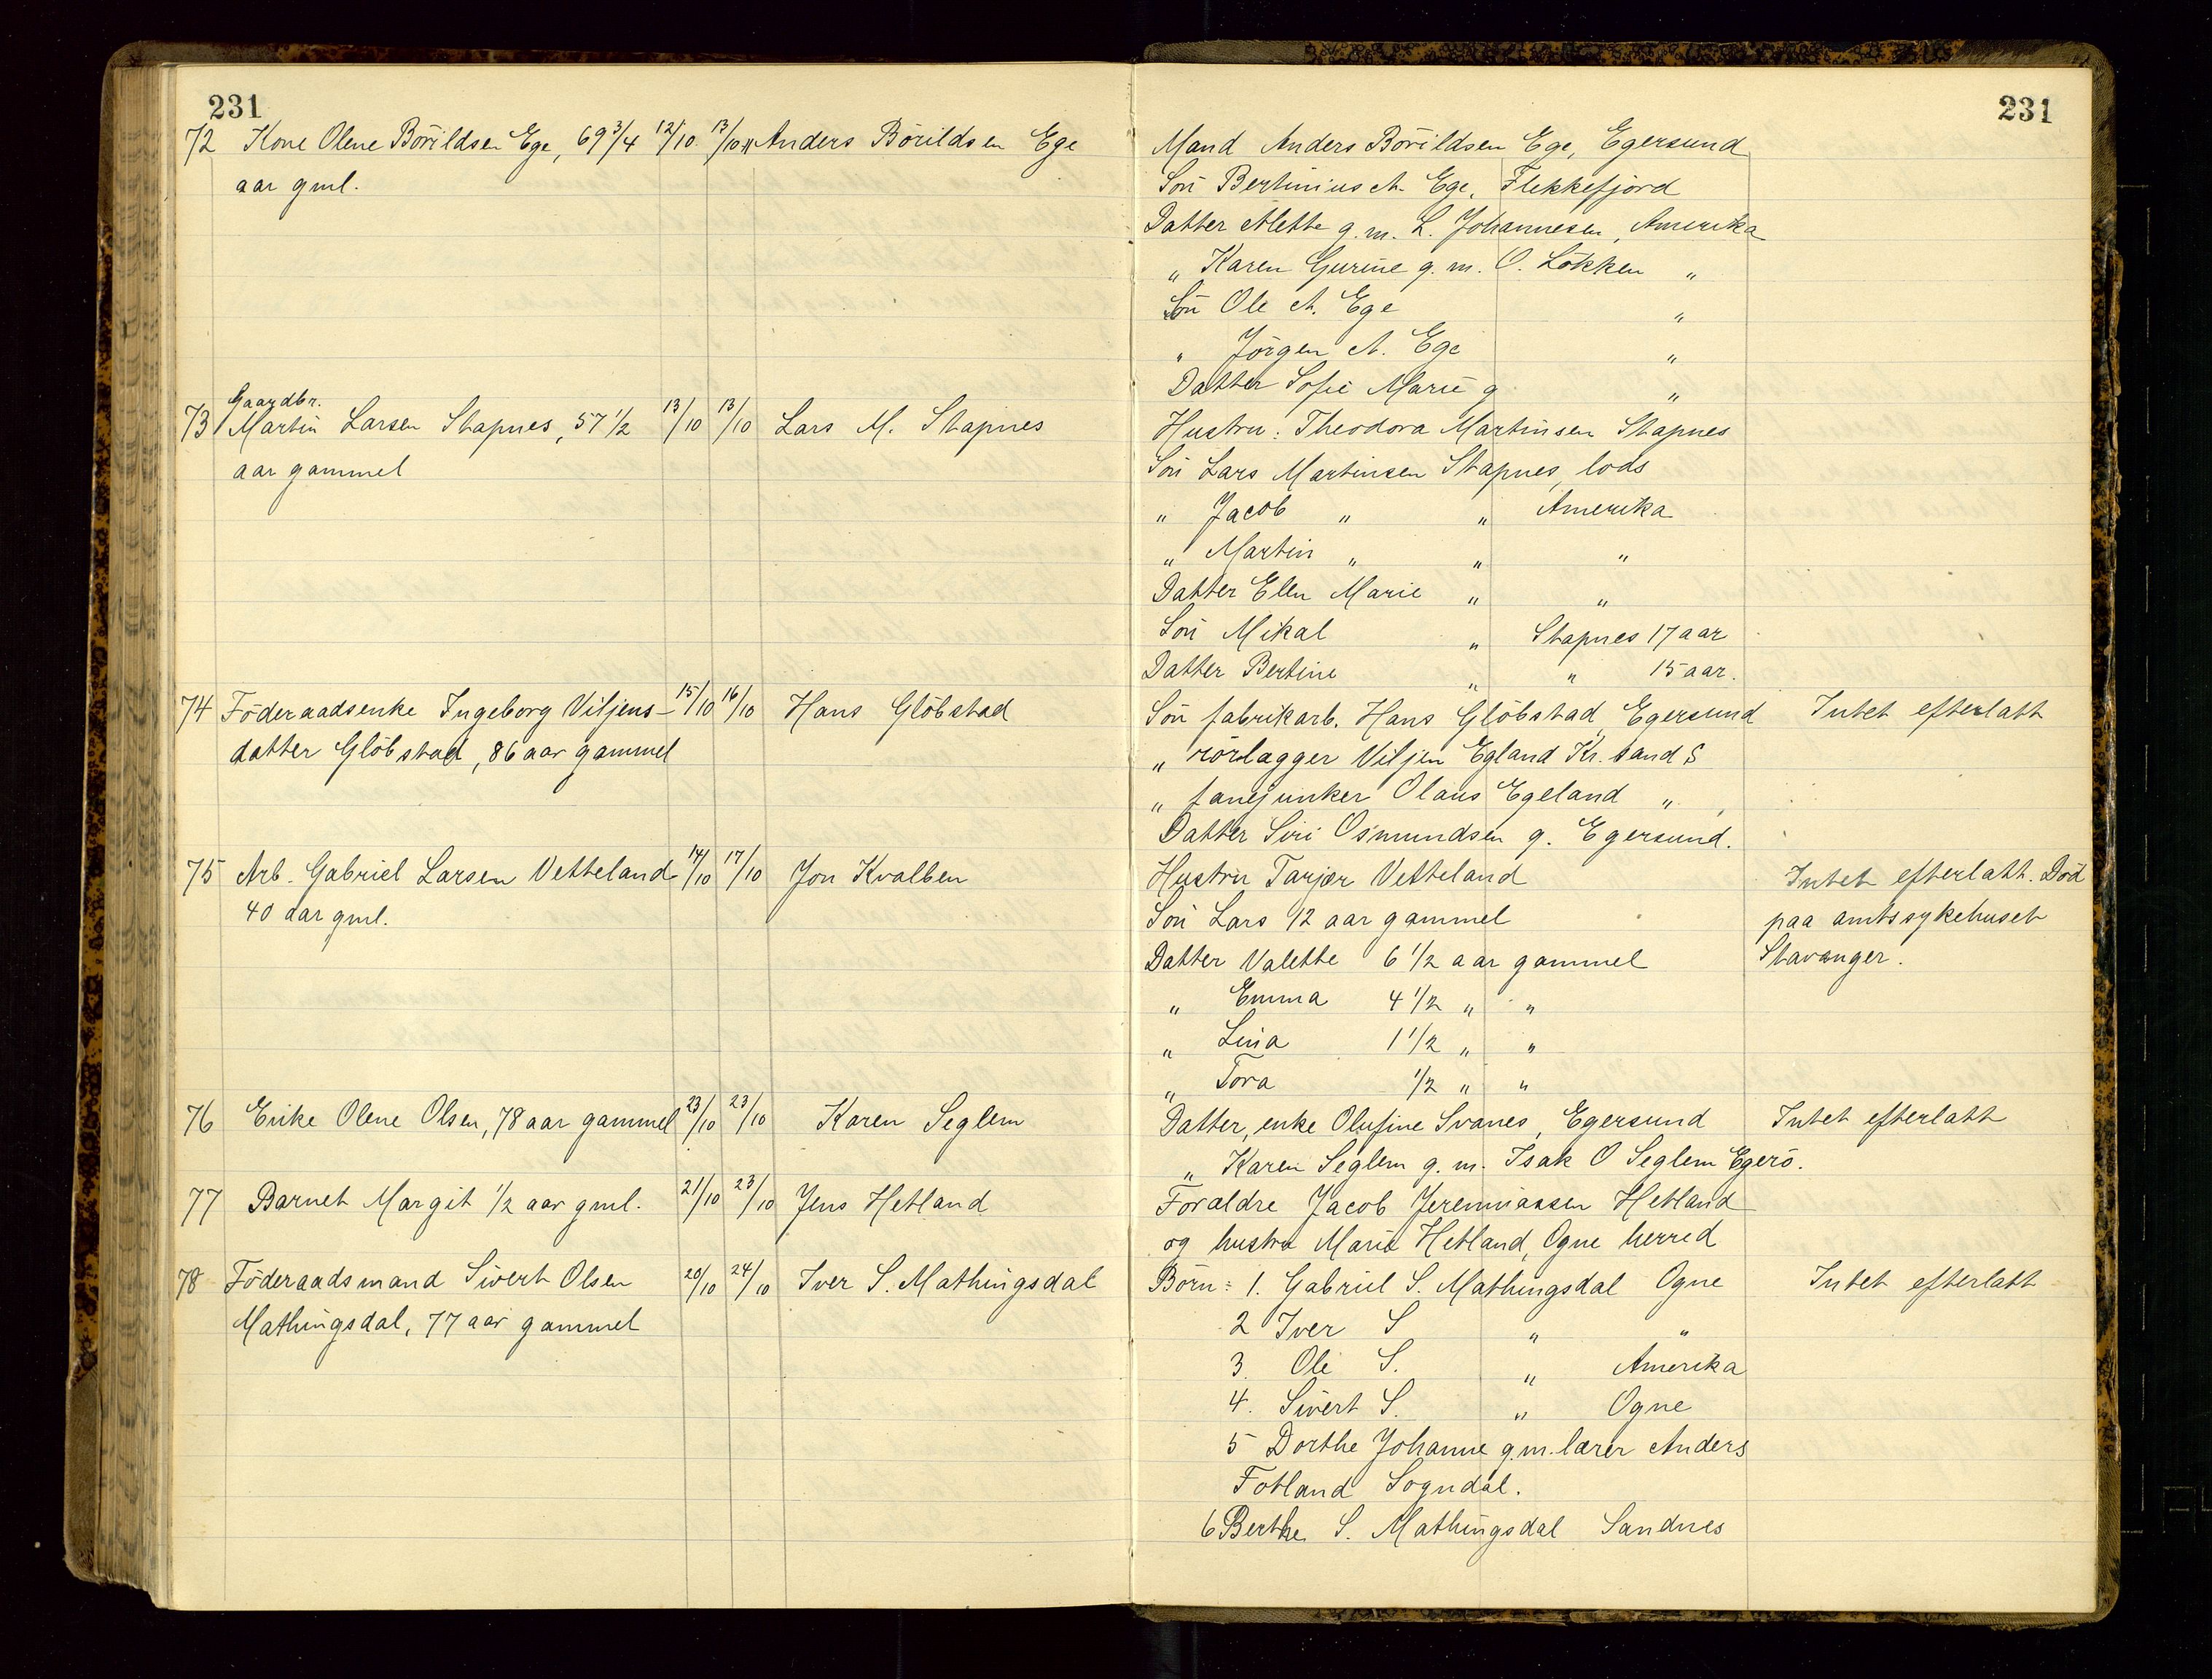 231
72 Kone Olene Börildsen Ege, 69 3/4 12/10 13/10 Anders Börildsen Ege
aar gml.
Gaardbr.
73 Martin Larsen Stapnes, 57 1/2 13/10 13/10 Lars M. Stapnes
aar gammel
74 Föderaadsenke Ingeborg Viljens- 15/10 16/10 Hans Glöbstad
datter Glöbstad, 86 aar gammel
75 Arb. Gabriel Larsen Vetteland 14/10 17/10 Jon Kvalben
40 aar gml.
76 Enke Olene Olsen, 78 aar gammel 23/10 23/10 Karen Seglem
77 Barnet Margit 1/2 aar gml. 21/10 23/10 Jens Hetland
78 Föderaadsmand Sivert Olsen 20/10 24/10 Iver S. Mathingsdal
Mathingsdal, 77 aar gammel
231
Mand Anders Börildsen Ege, Egersund
Sön Bertinius A. Ege, Flekkefjord
Datter Alette g.m. L. Johannesen, Amerika
" Karen Gurine g.m. O. Lökken "
Sön Ole A. Ege "
" Jörgen A. Ege "
Datter Sofie Marie g "
Hustru: Theodora Martinsen Stapnes
Sön Lars Martinsen Stapnes, lods
" Jacob " " Amerika
" Martin " " "
Datter Elen Marie " "
Sön Mikal " Stapnes 17 aar
Datter Bertine " " 15 aar.
Sön fabrikarb. Hans Glöbstad Egersund Intet efterlatt
" rörlægger Viljen Egland Kr.sand S
" fanejunker Olaus Egeland "
Datter Siri Osmundsen g. Egersund.
Hustru Tarjær Vetteland Intet efterlatt. Död
Sön Lars 12 aar gammel paa amtssykehuset
Datter Valette 6 1/2 aar gammel Stavanger.
" Emma 4 1/2 " "
" Lina 1 1/2 " "
" Tora 1/2 " "
Datter, enke Olufine Svanes, Egersund Intet efterlatt
" Karen Seglem g.m. Isak O Seglem Egerö.
Forældre Jacob Jeremiassen Hetland
og hustru Marie Hetland, Ogne herred
Börn: 1. Gabriel S. Mathingsdal Ogne Intet efterlatt
2 Iver S " "
3. Ole S. " Amerika
4. Sivert S. " Ogne
5 Dorthe Johanne g.m. lærer Anders
Fotland Sogndal.
6 Berthe S. Mathingsdal Sandnes